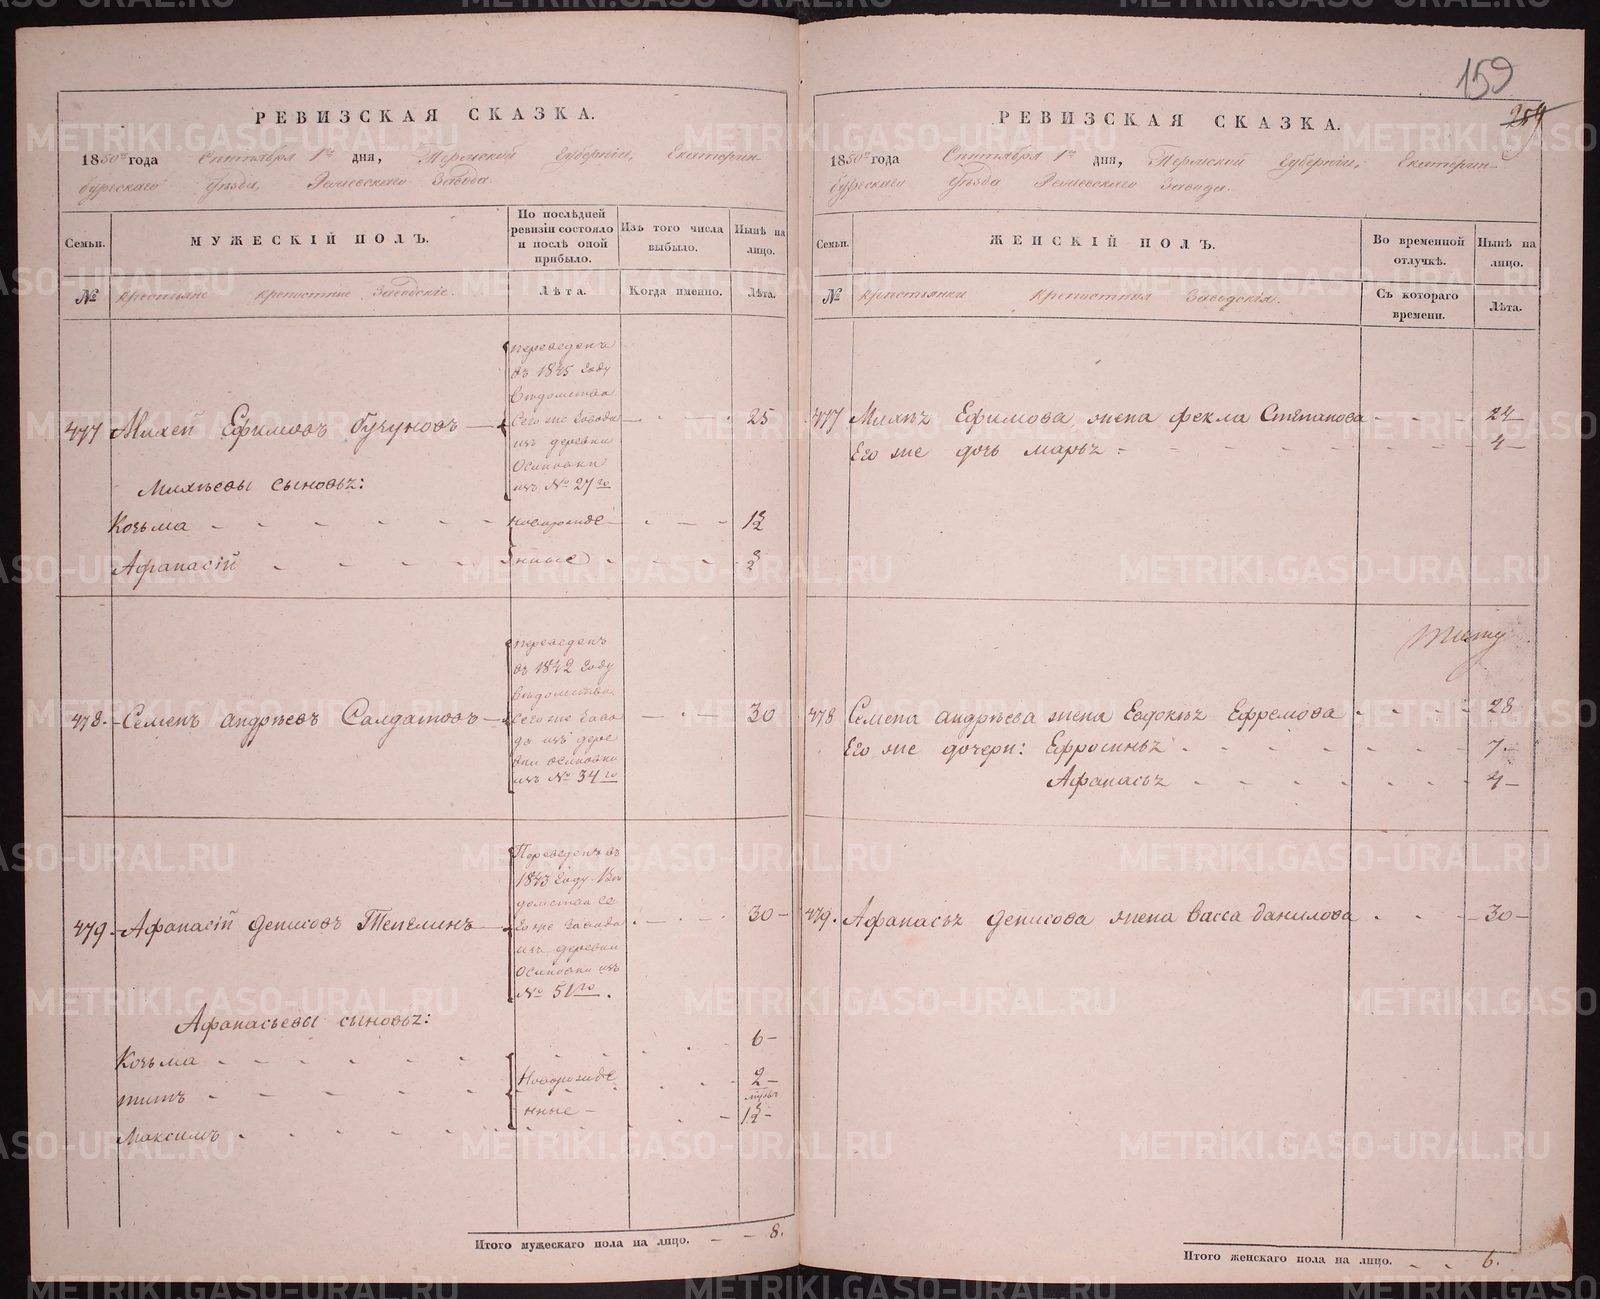 159
РЕВИЗСКАЯ СКАЗКА.
1850го года Сентября 1го дня, Пермской Губерніи, Екатерин-
бургскаго Уѣзда,
Завода.
Семьи. МУЖЕСКІЙ ПОЛЪ. По послѣдней ревизіи состояло и послѣ оной прибыло. Изъ того числа выбыло. Нынѣ на лицо.
№ крестьяне крепостные Заводскіе. Лѣта. Когда именно. Лѣта.
переведенъ
въ 1845 году
Ведомства
477 Михей Ефимовъ — Сего же Завода — 25
изъ деревни
Осиновки
изъ № 27го
Михѣевы сыновья:
Козьма - - - новорожде- 1½
Афанасій - - - нные ½
переведенъ
въ 1842 году
Ведомства
478. Семенъ Андрѣевъ Салдатовъ — Сего же Заво — 30
да изъ дере
вни Осиновки
изъ № 34го
Переведенъ въ
1843 году Ве
домства Се
479. Афанасій Денисовъ Тепелинъ — го же Завода 30 -
изъ деревни
Осиновки изъ
№ 51го.
Афанасьевы сыновья:
Козьма - - - 6 -
Титъ - - - Новорожде 2 -
нные -
Максимъ - - - 1½ -
Итого мужескаго пола на лицо. - - 8.
РЕВИЗСКАЯ СКАЗКА.
1850го года Сентября 1го дня, Пермской Губерніи, Екатерин-
бургскаго Уѣзда
Завода.
Семьи. ЖЕНСКІЙ ПОЛЪ. Во временной отлучкѣ. Нынѣ на лицо.
№ крестьянки крепостныя Заводскія. Съ котораго времени. Лѣта.
477 Михѣя Ефимова жена Фекла Степанова - - - 24
Его же дочь Марья - - - 4 -
478 Семена Андрѣева жена Евдокѣя Ефремова - - - 28
Его же дочери: Ефросинья - - - 7 -
Афанасья - - - 4 -
479. Афанасья Денисова жена Васса Данилова - - - 30 -
Итого женскаго пола на лицо. - - 6.
METRIKI.GASO-URAL.RU